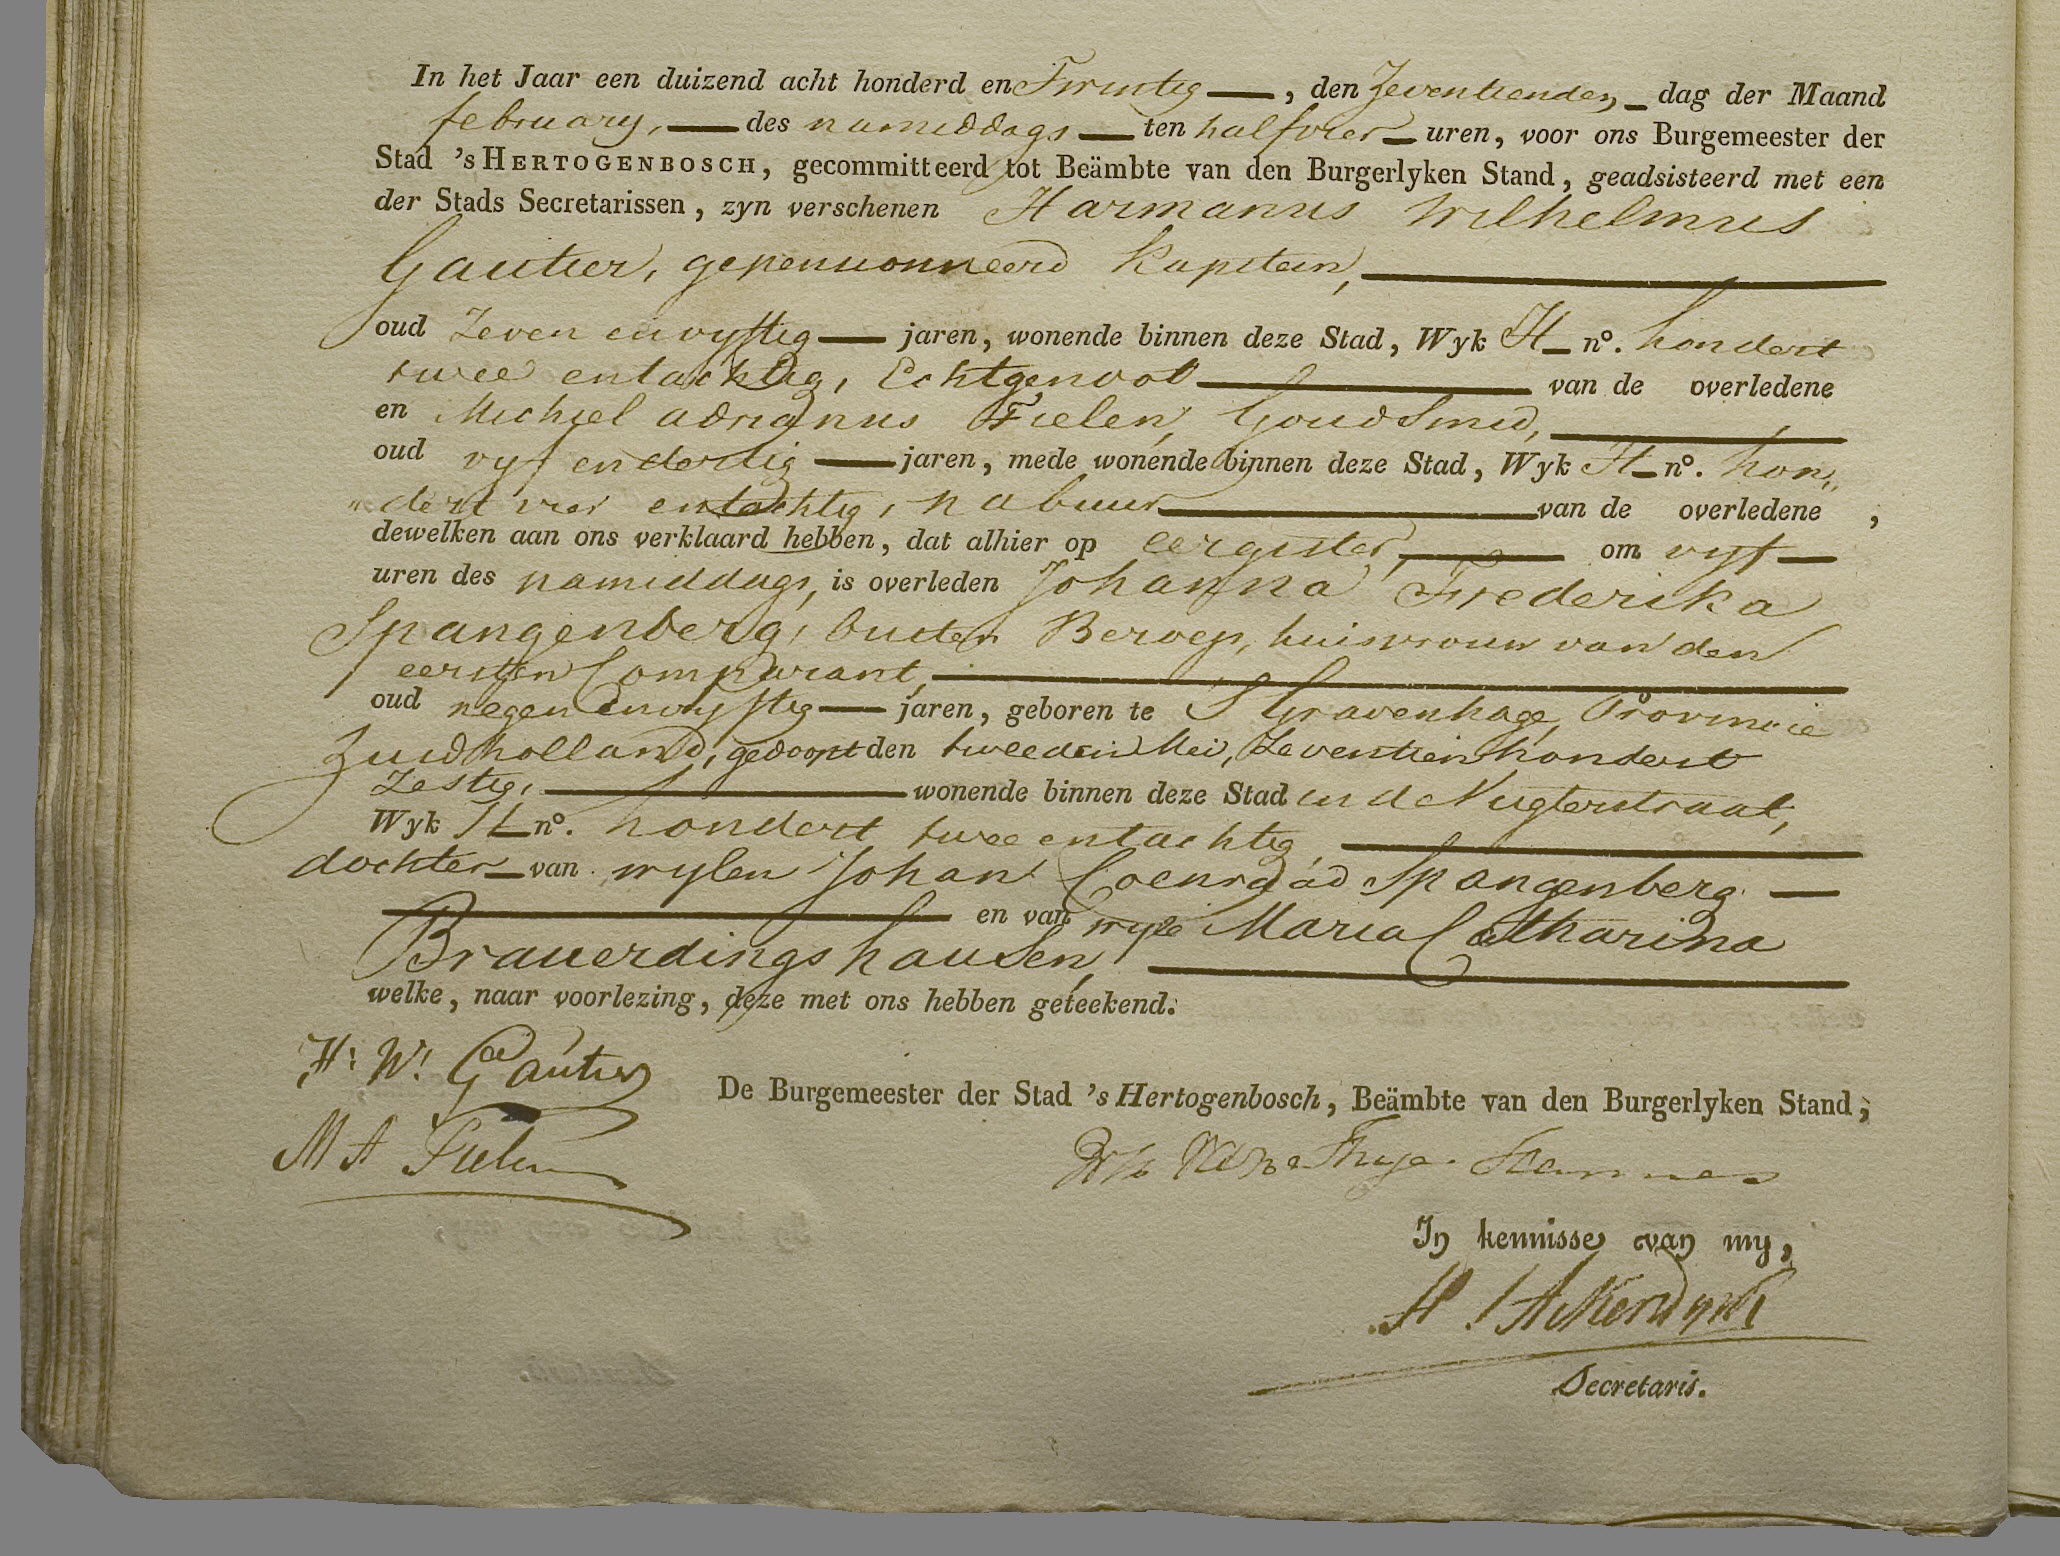 In het Jaar een duizend acht honderd en Twintig, den Zeventienden dag der Maand
february, des namiddags ten halfvier uren, voor ons Burgemeester der
Stad 's HERTOGENBOSCH, gecommitteerd tot Beämbte van den Burgerlyken Stand, geadsisteerd met een
der Stads Secretarissen, zyn verschenen Harmanus Wilhelmus
Gautier, gepensionneerd Kapitein,
oud Zeven en vyftig jaren, wonende binnen deze Stad, Wyk H no. hondert
twee entachtig, Echtgenoot van de overledene
en Michiel adrianus Fielen, Goudsmid,
oud vyf en dertig jaren, mede wonende binnen deze Stad, Wyk H no. hon„
„dert vier entachtig, nabuur van de overledene,
dewelken aan ons verklaard hebben, dat alhier op eergister, om vyf
uren des namiddags, is overleden Johanna Frederika
Spangenberg, buiten Beroep, huisvrouw van den
eersten Comparant,
oud negen en vyftig jaren, geboren te S Gravenhage, Provincie
Zuidholland, gedoopt den tweeden Mei, Zeventien hondert
Zestig, wonende binnen deze Stad in de Vugterstraat,
Wyk H no. hondert twee entachtig,
dochter van wylen Johan Coenraad Spangenberg
en van wyle Maria Catharina
Brauerdingshausen,
welke, naar voorlezing, deze met ons hebben geteekend.
H: W: Gautier
De Burgemeester der Stad 's Hertogenbosch, Beämbte van den Burgerlyken Stand,
M A Fielen
Hannes
In kennisse van my,
H. J Ackersdyck
Secretaris.